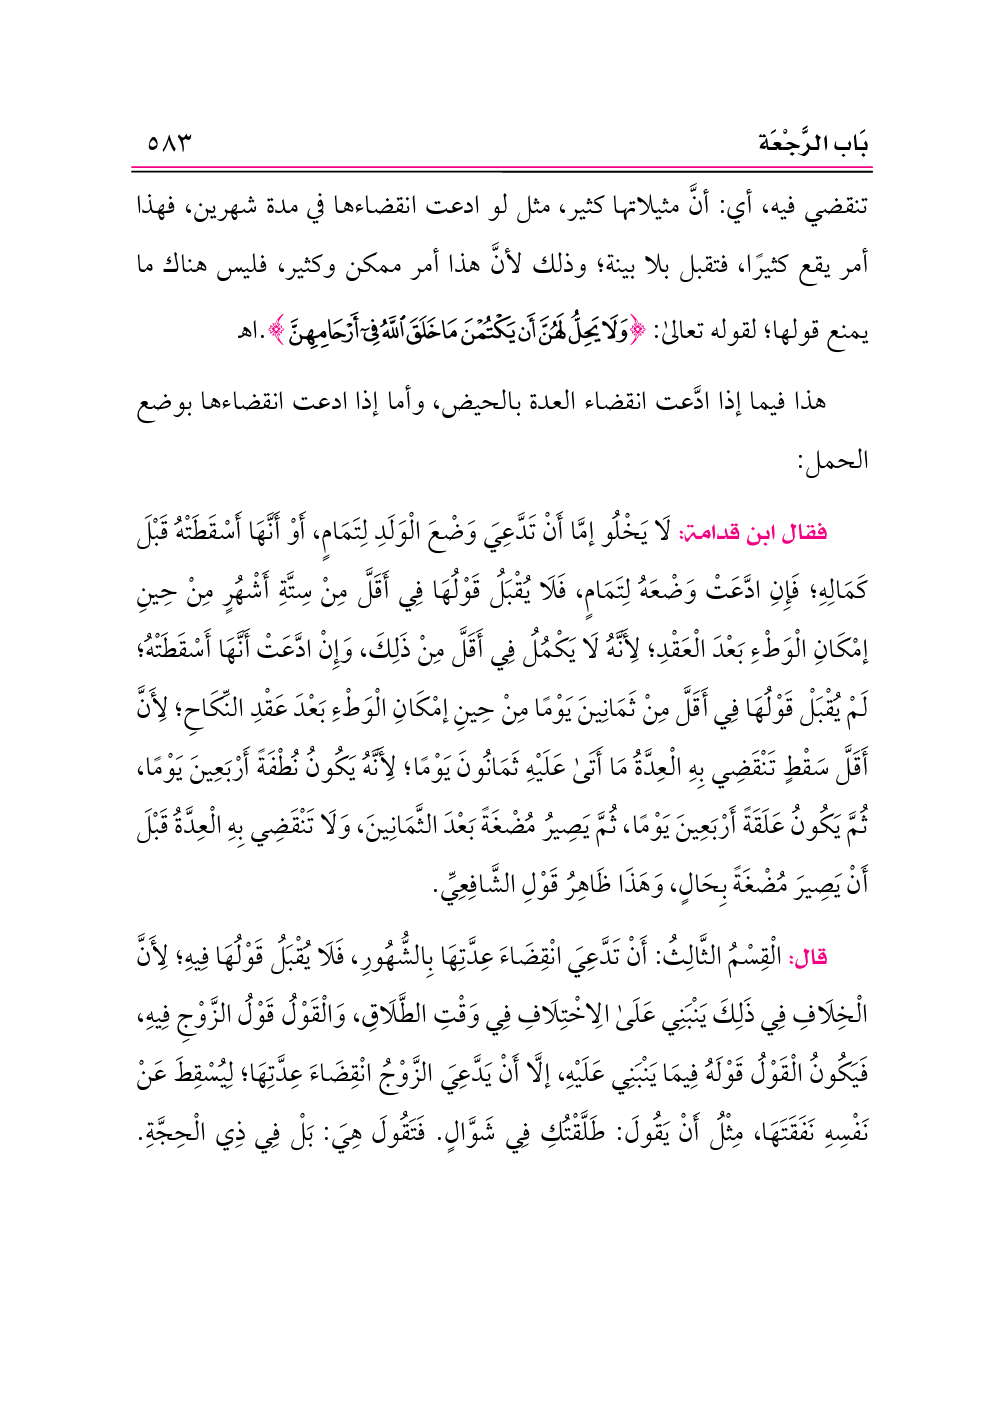 بَاب الرَّجْعَة ٥٨٣
تنقضي فيه، أي: أنَّ مثيلاتها كثير، مثل لو ادعت انقضاءها في مدة شهرين، فهذا
أمر يقع كثيرًا، فتقبل بلا بينة؛ وذلك لأنَّ هذا أمر ممكن وكثير، فليس هناك ما
يمنع قولها؛ لقوله تعالىٰ: ﴿وَلَا يَحِلُّ لَهُنَّ أَن يَكْتُمْنَ مَا خَلَقَ ٱللَّهُ فِىٓ أَرْحَامِهِنَّ﴾.اهـ
هذا فيما إذا ادَّعت انقضاء العدة بالحيض، وأما إذا ادعت انقضاءها بوضع
الحمل:
فقال ابن قدامة: لَا يَخْلُو إمَّا أَنْ تَدَّعِيَ وَضْعَ الْوَلَدِ لِتَمَامٍ، أَوْ أَنَّهَا أَسْقَطَتْهُ قَبْلَ
كَمَالِهِ؛ فَإِنِ ادَّعَتْ وَضْعَهُ لِتَمَامٍ، فَلَا يُقْبَلُ قَوْلُهَا فِي أَقَلَّ مِنْ سِتَّةِ أَشْهُرٍ مِنْ حِينِ
إمْكَانِ الْوَطْءِ بَعْدَ الْعَقْدِ؛ لِأَنَّهُ لَا يَكْمُلُ فِي أَقَلَّ مِنْ ذَلِكَ، وَإِنْ ادَّعَتْ أَنَّهَا أَسْقَطَتْهُ؛
لَمْ يُقْبَلْ قَوْلُهَا فِي أَقَلَّ مِنْ ثَمَانِينَ يَوْمًا مِنْ حِينِ إمْكَانِ الْوَطْءِ بَعْدَ عَقْدِ النِّكَاحِ؛ لِأَنَّ
أَقَلَّ سَقْطٍ تَنْقَضِي بِهِ الْعِدَّةُ مَا أَتَىٰ عَلَيْهِ ثَمَانُونَ يَوْمًا؛ لِأَنَّهُ يَكُونُ نُطْفَةً أَرْبَعِينَ يَوْمًا،
ثُمَّ يَكُونُ عَلَقَةً أَرْبَعِينَ يَوْمًا، ثُمَّ يَصِيرُ مُضْغَةً بَعْدَ الثَّمَانِينَ، وَلَا تَنْقَضِي بِهِ الْعِدَّةُ قَبْلَ
أَنْ يَصِيرَ مُضْغَةً بِحَالٍ، وَهَذَا ظَاهِرُ قَوْلِ الشَّافِعِيِّ.
قال: الْقِسْمُ الثَّالِثُ: أَنْ تَدَّعِيَ انْقِضَاءَ عِدَّتِهَا بِالشُّهُورِ، فَلَا يُقْبَلُ قَوْلُهَا فِيهِ؛ لِأَنَّ
الْخِلَافِ فِي ذَلِكَ يَنْبَنِي عَلَىٰ الِاخْتِلَافِ فِي وَقْتِ الطَّلَاقِ، وَالْقَوْلُ قَوْلُ الزَّوْجِ فِيهِ،
فَيَكُونُ الْقَوْلُ قَوْلَهُ فِيمَا يَنْبَنِي عَلَيْهِ، إلَّا أَنْ يَدَّعِيَ الزَّوْجُ انْقِضَاءَ عِدَّتِهَا؛ لِيُسْقِطَ عَنْ
نَفْسِهِ نَفَقَتَهَا، مِثْلُ أَنْ يَقُولَ: طَلَّقْتُكِ فِي شَوَّالٍ. فَتَقُولَ هِيَ: بَلْ فِي ذِي الْحِجَّةِ.